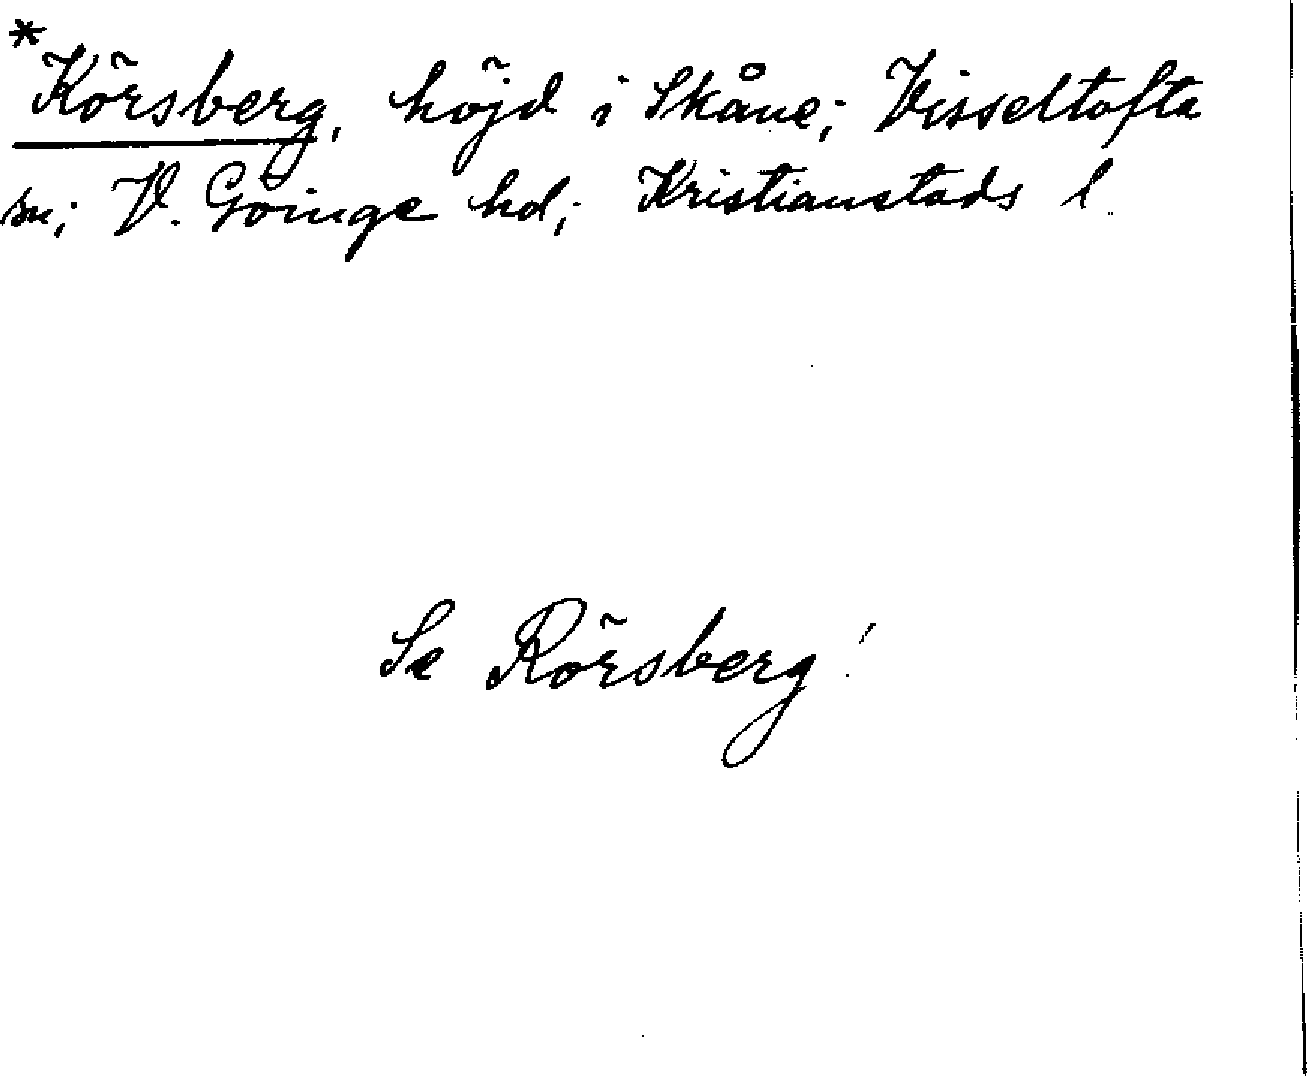 *Körsberg, höjd i Skåne; Visseltofta
sn; V. Göinge hd; Kristianstads l.
Se Rörsberg!